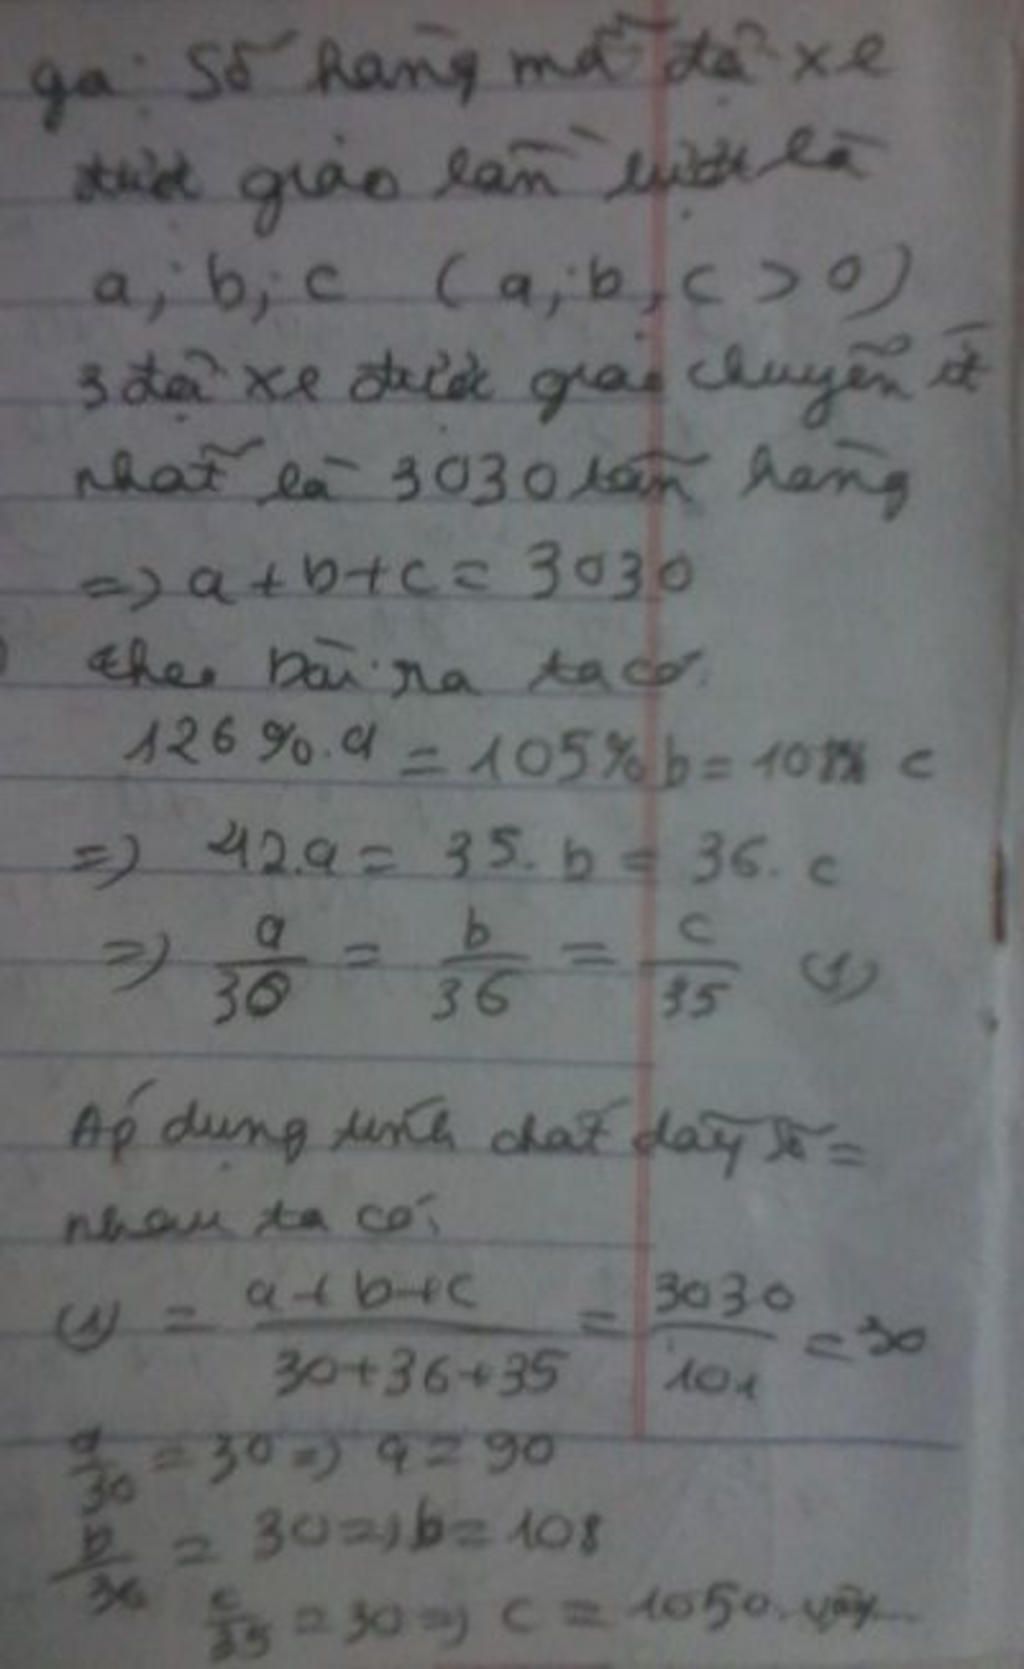 gọi số hàng mỗi đội xe
được giao lần lượt là
a; b; c (a; b, c > 0)
3 đội xe được giao chuyển ít
nhất là 3030 tấn hàng
=> a + b + c = 3030
theo bài ra ta có
126%.a = 105% b = 108% c
=> 42.a = 35. b = 36. c
=> a/30 = b/36 = c/35 (1)
Áp dụng tính chất dãy tỉ số =
nhau ta có:
(1) = a+b+c/30+36+35 = 3030/101 = 30
a/30 = 30 => a = 90
b/36 = 30 => b = 108
c/35 = 30 => c = 1050. vậy...